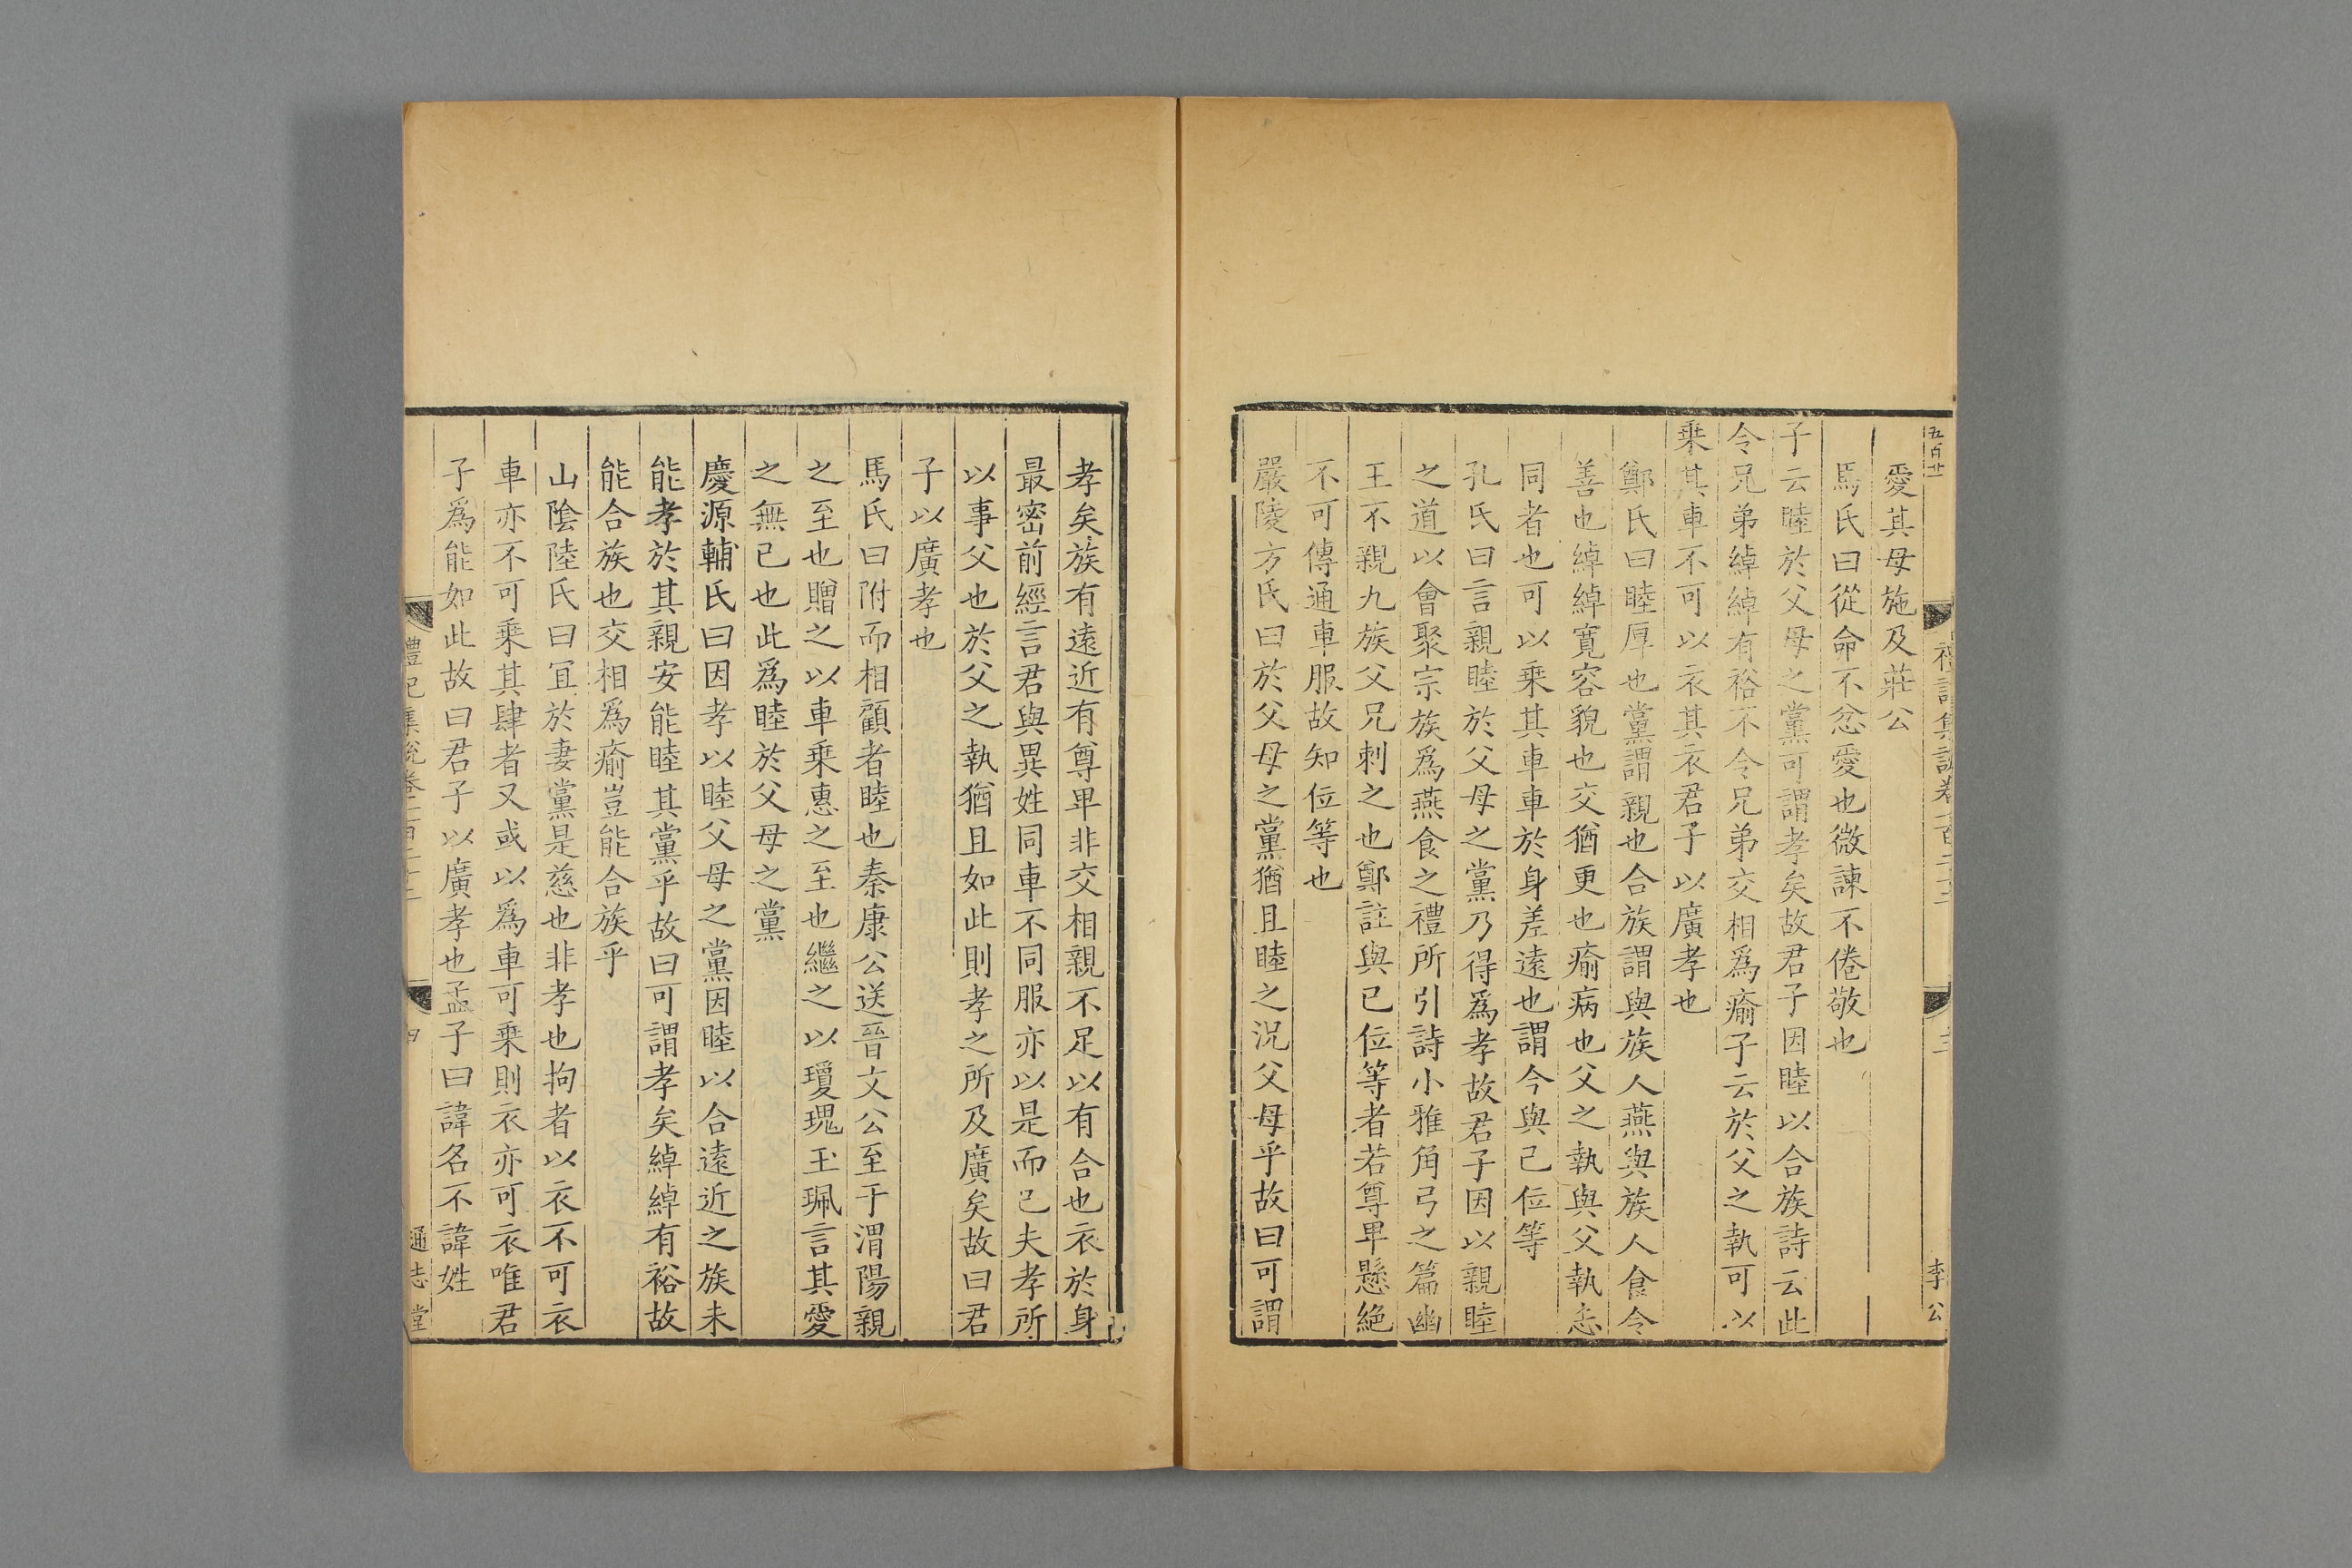 五百廿
禮記集說卷一百二十二
三
李公
愛其母施及莊公
馬氏曰從命不忿愛也微諫不倦敬也
子云睦於父母之黨可謂孝矣故君子因睦以合族詩云此
令兄弟綽綽有裕不令兄弟交相爲瘉子云於父之執可以
乗其車不可以衣其衣君子以廣孝也
鄭氏曰睦厚也黨謂親也合族謂與族人燕與族人食令
善也綽綽寛容貌也交猶更也瘉病也父之執與父執志
同者也可以乗其車車於身差遠也謂今與己位等
孔氏曰言親睦於父母之黨乃得爲孝故君子因以親睦
之道以會聚宗族爲燕食之禮所引詩小雅角弓之篇幽
王不親九族父兄刺之也鄭註與已位等者若尊卑懸絶
不可傳通車服故知位等也
嚴陵方氏曰於父母之黨猶且睦之況父母乎故曰可謂
孝矣族有遠近有尊卑非交相親不足以有合也衣於身
最密前經言君與異姓同車不同服亦以是而已夫孝所
以事父也於父之執猶且如此則孝之所及廣矣故曰君
子以廣孝也
馬氏曰附而相顧者睦也秦康公送晉文公至于渭陽親
之至也贈之以車乗惠之至也繼之以瓊瑰玉珮言其愛
之無已也此爲睦於父母之黨
慶源輔氏曰因孝以睦父母之黨因睦以合遠近之族未
能孝於其親安能睦其黨乎故曰可謂孝矣綽綽有裕故
能合族也交相爲瘉豈能合族乎
山陰陸氏曰冝於妻黨是慈也非孝也拘者以衣不可衣
車亦不可乗其肆者又或以爲車可乗則衣亦可衣唯君
子爲能如此故曰君子以廣孝也孟子曰諱名不諱姓
禮記集說卷一百二十二
四
通志堂